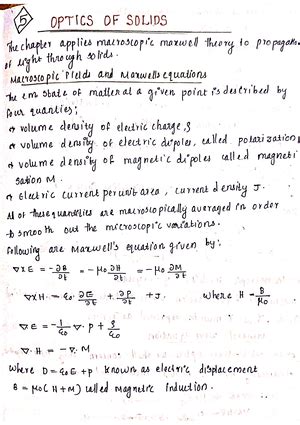 5 OPTICS OF SOLIDS
The chapter applies macroscopic maxwell theory to propagation
of light through solids.
Macroscopic Fields and Maxwells equations
The em state of matter at a given point is described by
four quanties;
→ volume density of electric charge, ρ
→ volume density of electric dipoles, called polarization P
→ volume density of magnetic dipoles called magneti
sation M.
→ Electric current per unit area, current density J.
All of these quantities are macroscopically averaged in order
to smooth out the microscopic variations.
Following are Maxwell's equation given by:
∇×E = -∂B/∂t = -μ₀ ∂H/∂t = -μ₀ ∂M/∂t
∇×H = ε₀ ∂E/∂t + ∂P/∂t + J. where H = B/μ₀
∇E = -1/ε₀ ∇. P + ρ/ε₀
∇. H = -∇. M
where D = ε₀E + P known as electric displacement
B = μ₀(H + M) called Magnetic Induction.